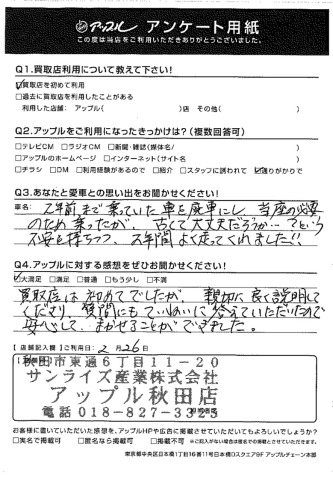 アップル アンケート用紙
この度は当店をご利用いただきありがとうございました。
Q1.買取店利用について教えて下さい!
買取店を初めて利用
□過去に買取店を利用したことがある
利用した店舗: アップル( )店 その他( )
Q2.アップルをご利用になったきっかけは?(複数回答可)
□テレビCM □ラジオCM □新聞・雑誌(媒体名/ )
□アップルのホームページ □インターネット(サイト名 )
□チラシ □DM □利用経験があるので □紹介 □スタッフに誘われて 通りがかりで
Q3.あなたと愛車との思い出をお聞かせください!
車名:
2年前まで乗っていた車を廃車にし、当座の必要
のため乗ったが、古くて大丈夫だろうか…という
不安を持ちつつ、2年間よく走ってくれました!!
Q4.アップルに対する感想をぜひお聞かせください!
大満足 □満足 □普通 □もう少し □不満
買取店は初めてでしたが、親切に良く説明して
くださり、質問にもていねいに答えていただいたので
安心して、まかせることができました。
【店舗記入欄】ご利用日: 2月26日
秋田市東通6丁目11-20
サンライズ産業株式会社
アップル秋田店
電話 018-827-3323
お客様に書いていただいた感想を、アップルHPや広告に掲載させていただいてもよろしいでしょうか?
□実名で掲載可 □匿名なら掲載可 □掲載不可 ※ご記入がない場合は匿名での掲載とさせていただきます。
東京都中央区日本橋1丁目16番11号日本橋Dスクエア9F アップルチェーン本部